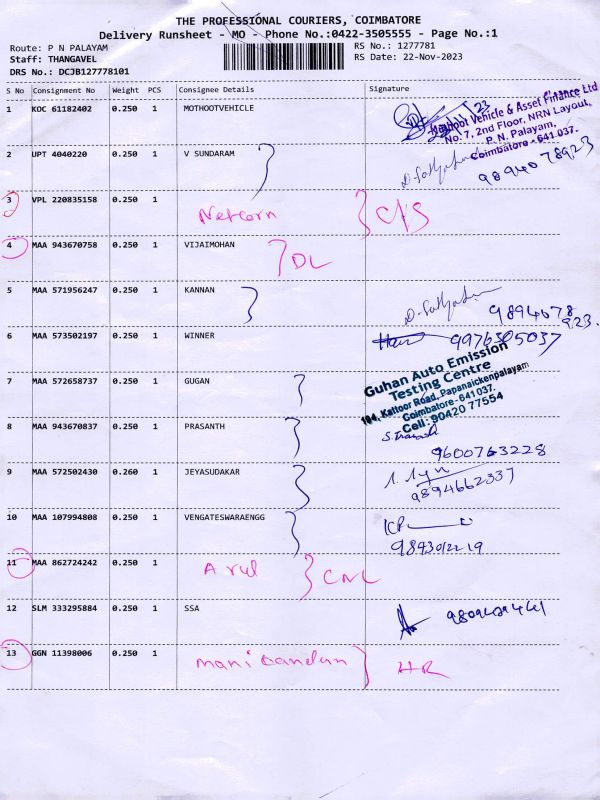 THE PROFESSIONAL COURIERS, COIMBATORE
Delivery Runsheet - MO - Phone No.:0422-3505555 - Page No.:1
Route: P N PALAYAM
RS No.: 1277781
Staff: THANGAVEL
RS Date: 22-Nov-2023
DRS No.: DCJB127778101
S No Consignment No Weight PCS Consignee Details Signature
1 KOC 61182402 0.250 1 MOTHOOTVEHICLE
Muthoot Vehicle & Asset Finance Ltd
No. 7, 2nd Floor, NRN Layout,
P. N. Palayam,
Coimbatore - 641 037.
2 UPT 4040220 0.250 1 V SUNDARAM
9894078923
3 VPL 220835158 0.250 1 Netcorn C/S
4 MAA 943670758 0.250 1 VIJAIMOHAN DL
5 MAA 571956247 0.250 1 KANNAN
9894078923
6 MAA 573502197 0.250 1 WINNER 9976305037
Guhan Auto Emission
Testing Centre
104, Kattoor Road, Papanaickenpalayam
Coimbatore - 641 037.
Cell: 90420 77554
7 MAA 572658737 0.250 1 GUGAN
8 MAA 943670837 0.250 1 PRASANTH
9600763228
9 MAA 572502430 0.260 1 JEYASUDAKAR
9894662337
10 MAA 107994808 0.250 1 VENGATESWARAENGG
11 MAA 862724242 0.250 1 Arul CNL
12 SLM 333295884 0.250 1 SSA
13 GGN 11398006 0.250 1 manikandan HR